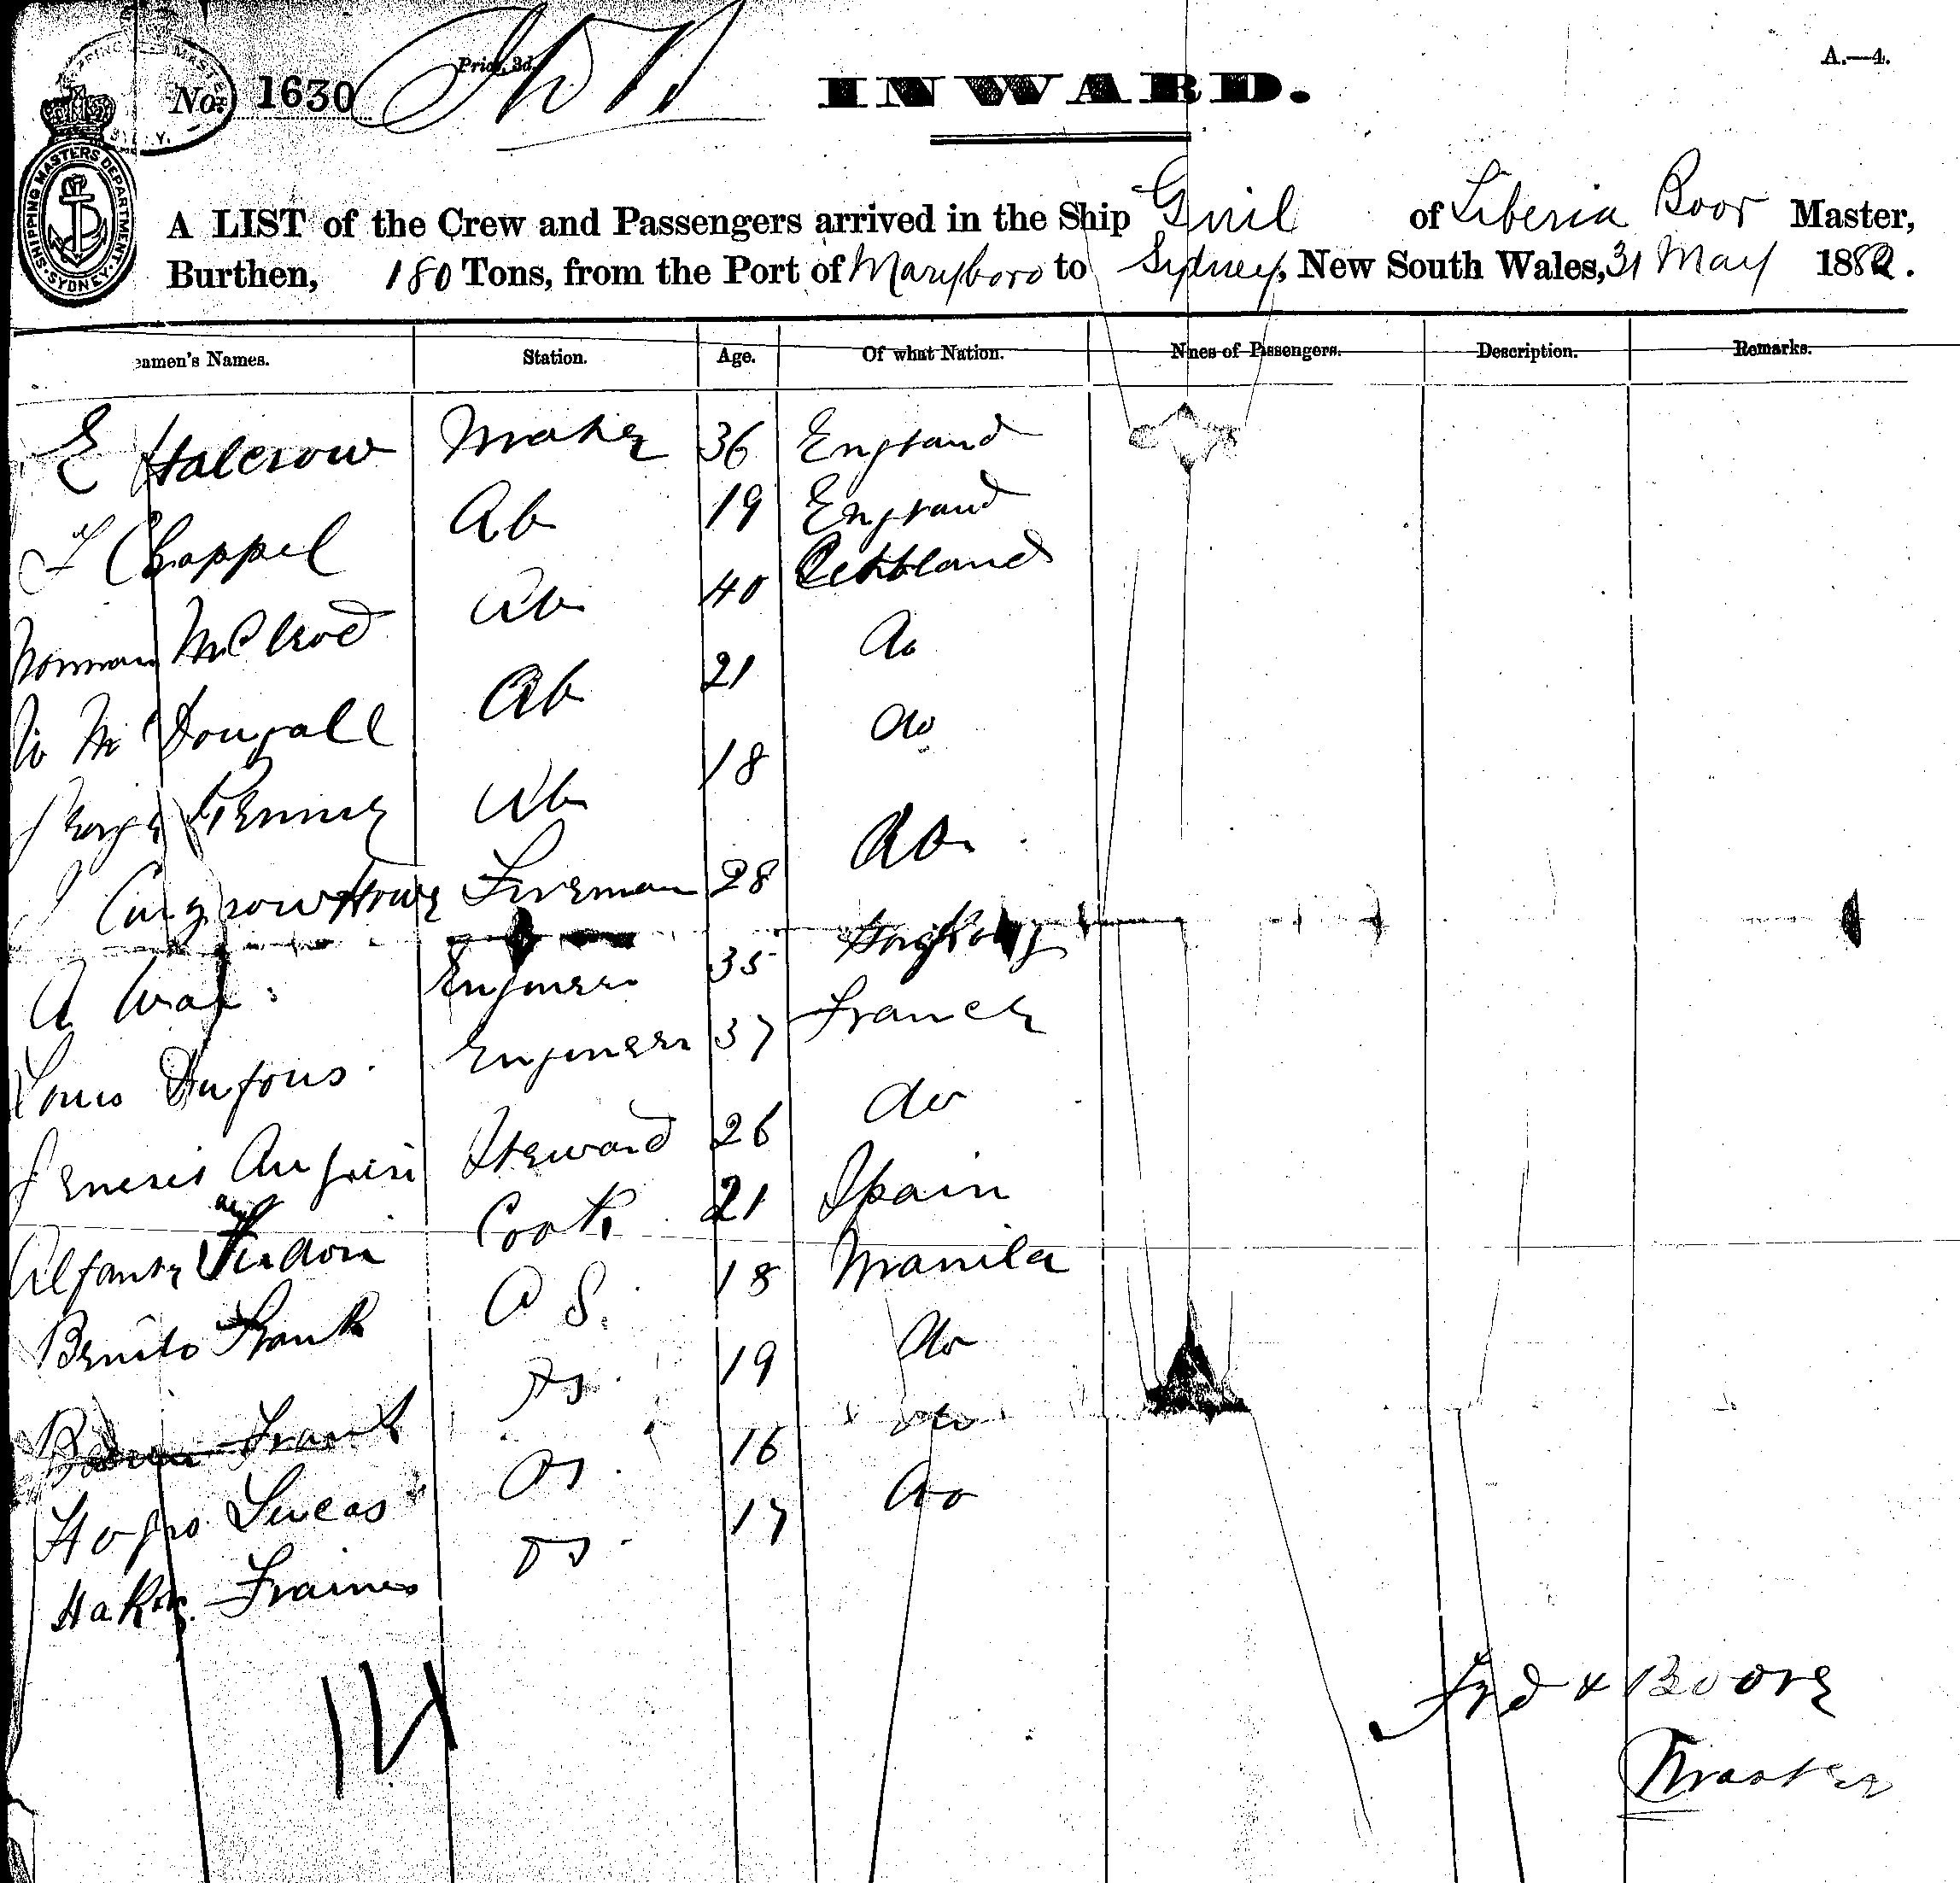 No. 1630
Price, 3d.
INWARD.
A.—4.
SHIPPING MASTERS DEPARTMENT. SYDNEY
A LIST of the Crew and Passengers arrived in the Ship Gnil of Liberia Boor Master,
Burthen, 180 Tons, from the Port of Maryboro to Sydney, New South Wales, 31 May 1882.
eamen's Names. Station. Age. Of what Nation. Nmes of Passengers. Description. Remarks.
E Halcrow Mate 36 England
F Chappel Ab 19 England
Norman McCleod Ab 40 Scotland
McDougall Ab 21 do
George Rennie Ab 18 do
Fireman 28 do
A Engineer 35 Hong Kong
Louis Dufous Engineer 37 France
Steward 26 do
Cook 21 Spain
Benito Frank O S. 18 Manila
Frank Os 19 do
Lucas Os 16 do
Os 17 do
Fred & Boore
Master